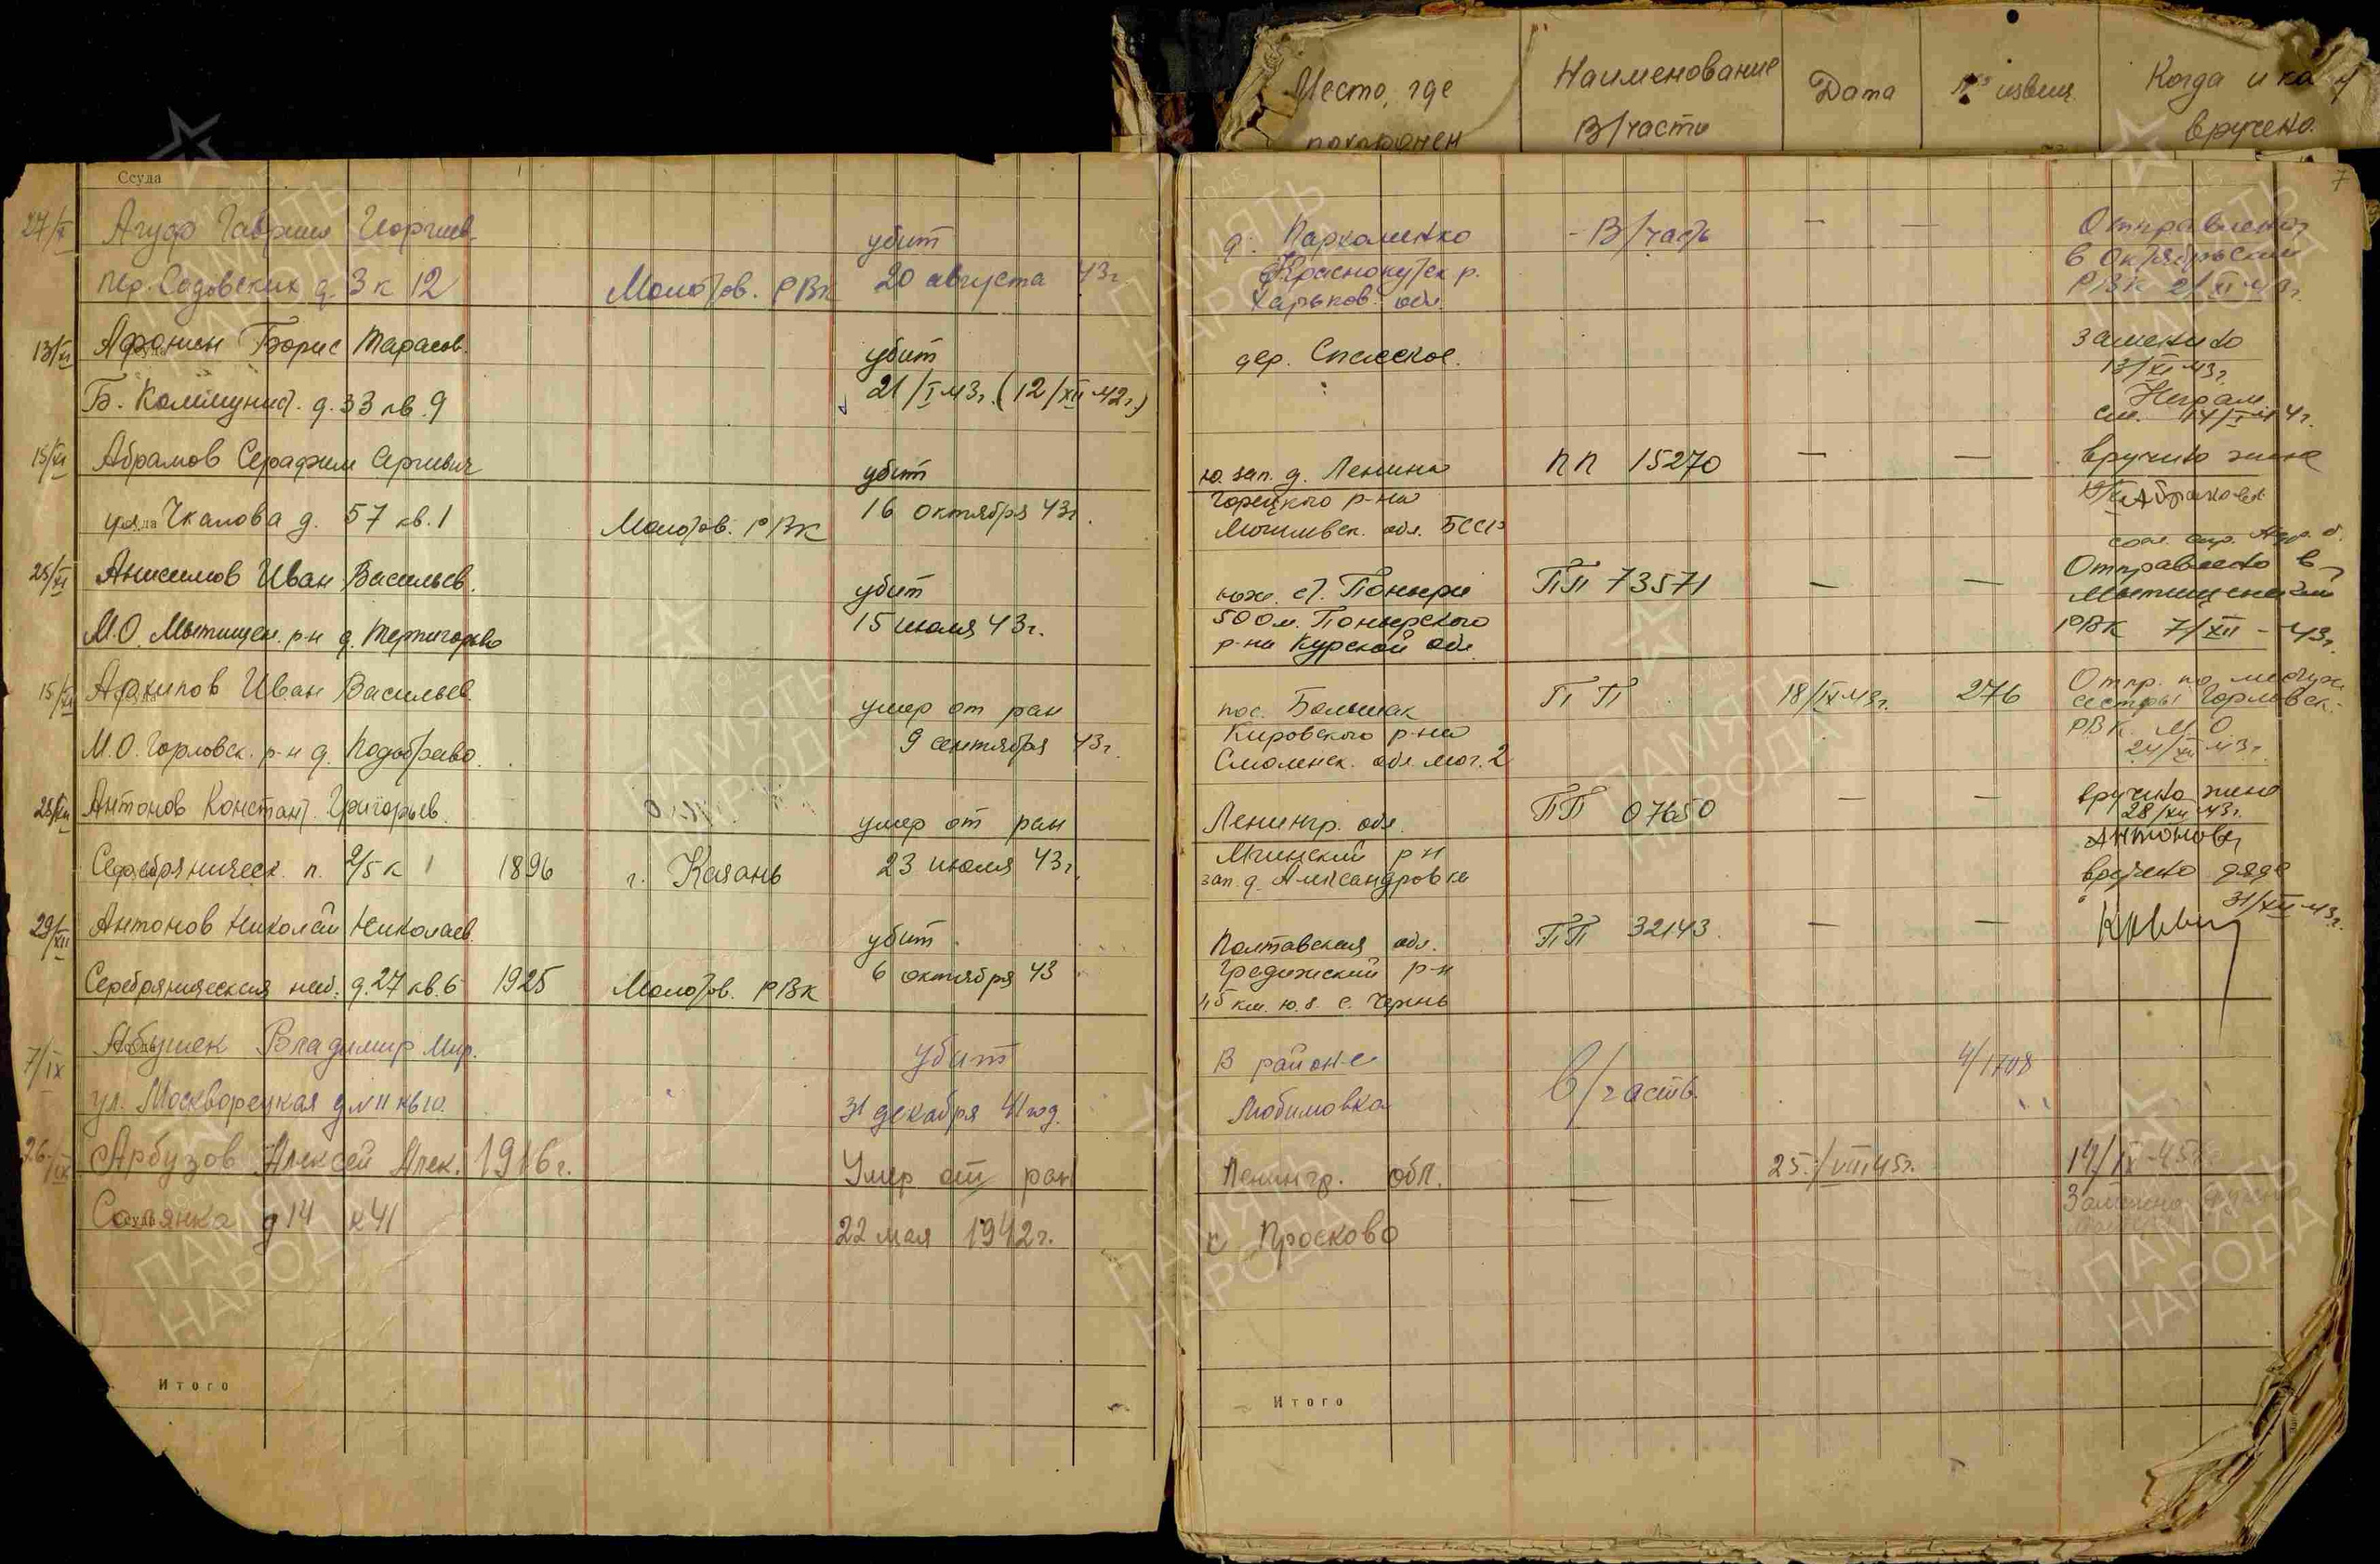 Место, где похоронен
Наименование В/части
Дата
№ извещ.
Когда и кому вручено.
7
Ссуда
27/X Агуф Гаврил Георгиев.
пер. Садовских д. 3 к 12
Молотов. РВК
убит
20 августа 43г.
д. Пархоменко
Краснокутск р.
Харьков. обл.
- В/часть
— —
Отправлено
в Октябрьский
РВК 21/XII 43г.
13/XI Афонин Борис Тарасов.
Б. Коммунист. д. 33 кв. 9
убит
21/I 43г. (12/XII 42г.)
дер. Спасское.
заменено
13/XI 43г.
см. 14/I 44г.
15/XI Абрамов Серафим Сергиевич
Чкалова д. 57 кв. 1
Молотов. РВК
убит
16 октября 43г.
ю. зап. д. Ленино
Горецкого р-на
Могилевск. обл. БССР
пп 15270
— —
вручено жене
25/XI Анисимов Иван Васильев.
М.О. Мытищен. р-н д. Терпигорьево
убит
15 июля 43г.
юж. ст. Поныри
500 м. Поныровского
р-на Курской обл.
ПП 73571
— —
Отправлено в
Мытищенский
РВК 7/XII - 43г.
15/XII Архипов Иван Васильев.
М.О. Горловск. р-н д.
умер от ран
9 сентября 43г.
пос. Большак
Кировского р-на
Смоленск. обл. мог. 2
ПП
18/IX 43г.
276
Отпр. по
сестры Горловск.
РВК М.О.
24/XII 43г.
28/XII Антонов Констант. Григорьев.
Серебряническ. п. 2/5 к 1
1896
г. Казань
умер от ран
23 июля 43г.
Ленингр. обл.
Мгинский р-н
зап. д. Александровка
ПП 07650
— —
вручено жене
28/XII 43г.
Антонова
29/XII Антонов Николай Николаев.
Серебряническая наб. д. 27 кв. 6
1925
Молотов. РВК
убит
6 октября 43
Полтавская обл.
Градижский р-н
ПП 32143
— —
вручено дяде
31/XII 43г.
7/IX Абушек Владимир Мир.
ул. Москворецкая д №11 кв 10.
убит
31 декабря 41 год.
В районе
Любимовка
в/часть.
4/1708
26/IX Арбузов Алексей Алек. 1916г.
Солянка д 14 к 41
Умер от ран
22 мая 1942г.
Ленингр. обл.
Просково
—
25/VIII 45г.
14/IX-45г.
Итого
Итого
ПАМЯТЬ НАРОДА